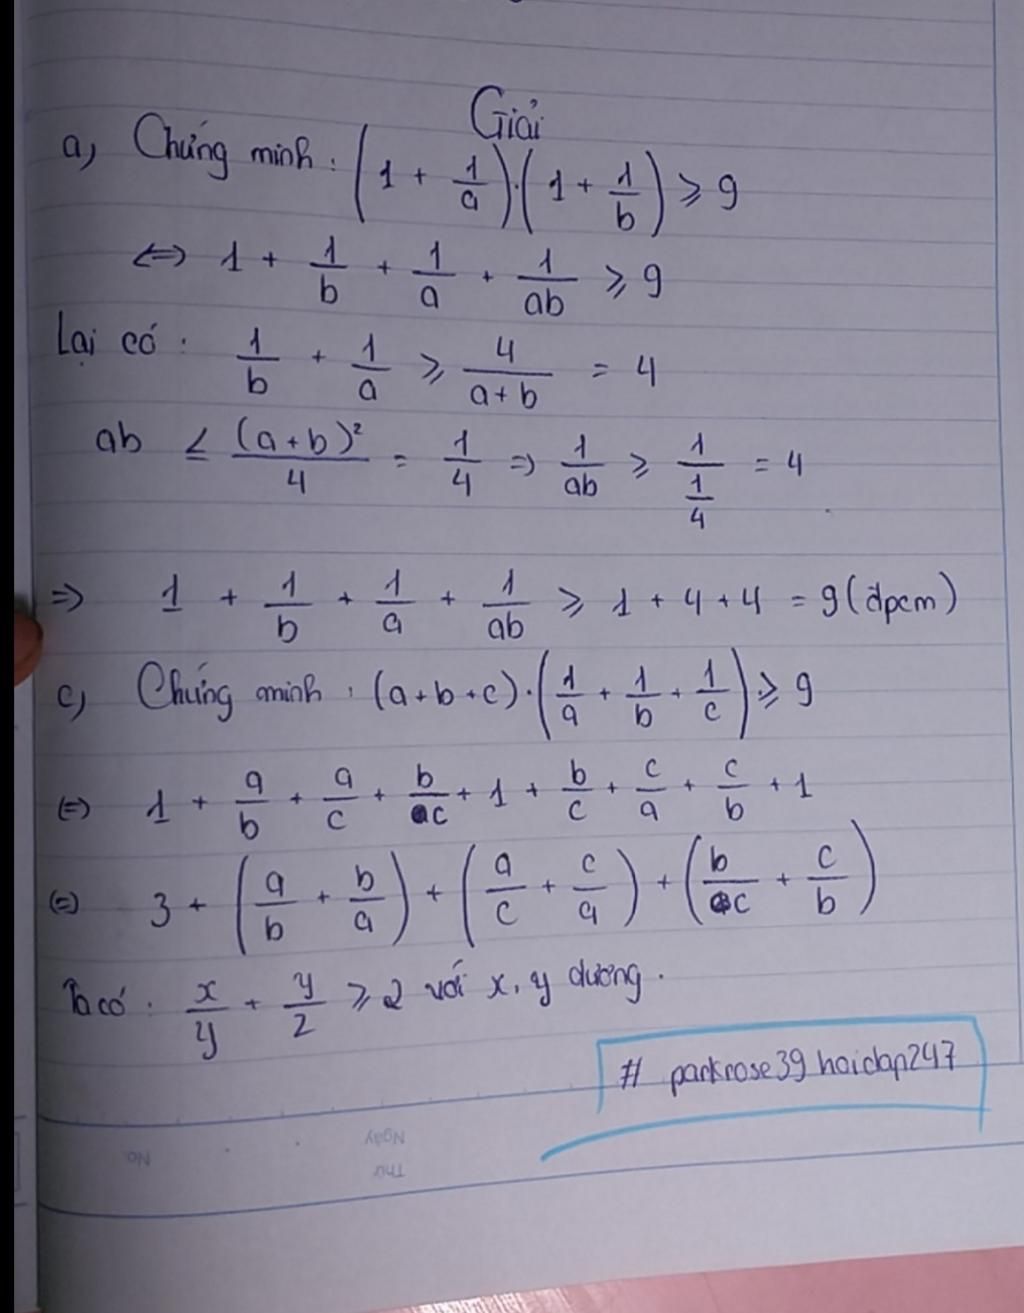 Giải
a, Chứng minh : (1 + 1/a).(1 + 1/b) ≥ 9
<=> 1 + 1/b + 1/a + 1/ab ≥ 9
Lại có : 1/b + 1/a ≥ 4/(a+b) = 4
ab ≤ (a+b)²/4 = 1/4 => 1/ab ≥ 1/(1/4) = 4
=> 1 + 1/b + 1/a + 1/ab ≥ 1 + 4 + 4 = 9 (đpcm)
c, Chứng minh : (a+b+c).(1/a + 1/b + 1/c) ≥ 9
(=) 1 + a/b + a/c + b/c + 1 + b/c + c/a + c/b + 1
(=) 3 + (a/b + b/a) + (a/c + c/a) + (b/c + c/b)
Ta có : x/y + y/2 ≥ 2 với x, y dương.
# parkrose39 hoidap247
Ngày
No.
Thứ